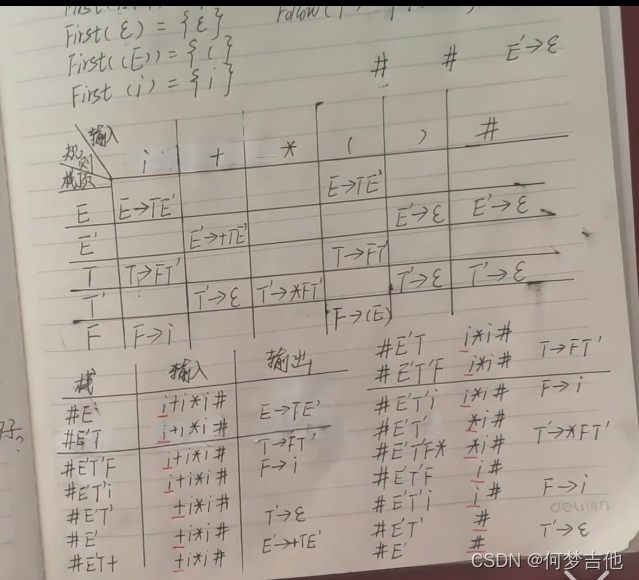 First(ε) = {ε}
First((E)) = {(}
First(i) = {i}
Follow(
# # E'→ε
输入
规则
栈顶
i + * ( ) #
E E→TE' E→TE'
E' E'→+TE' E'→ε E'→ε
T T→FT' T→FT'
T' T'→ε T'→*FT' T'→ε T'→ε
F F→i F→(E)
栈 输入 输出
#E i+i*i# E→TE'
#E'T i+i*i# T→FT'
#E'T'F i+i*i# F→i
#E'T'i i+i*i#
#E'T' +i*i# T'→ε
#E' +i*i# E'→+TE'
#E'T+ +i*i#
#E'T i*i# T→FT'
#E'T'F i*i# F→i
#E'T'i i*i#
#E'T' *i# T'→*FT'
#E'T'F* *i#
#E'T'F i# F→i
#E'T'i i#
#E'T' # T'→ε
#E' #
deli得力
CSDN @何梦吉他